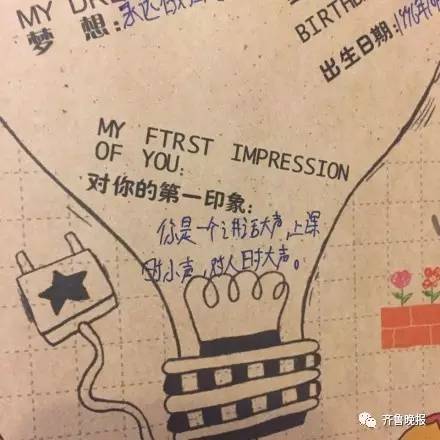 MY DR
梦 想:永远
BIRTH
出生日期:1996年
MY FTRST IMPRESSION
OF YOU:
对你的第一印象:
你是一个讲话大声,上课
时小声,对人时大声。
齐鲁晚报